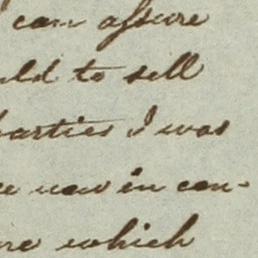 can assure
uld to sell
parties I was
we now in con-
me which